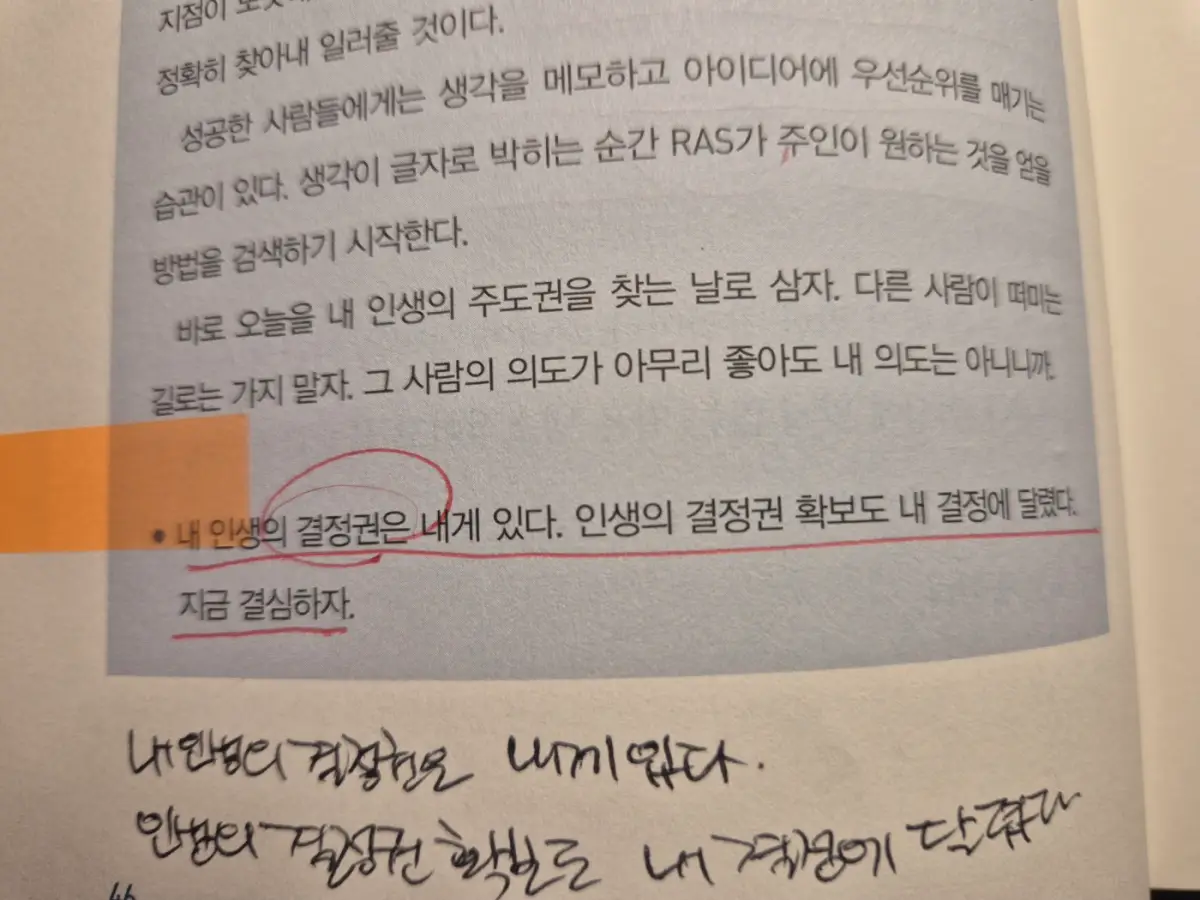 지점이
정확히 찾아내 일러줄 것이다.
성공한 사람들에게는 생각을 메모하고 아이디어에 우선순위를 매기는
습관이 있다. 생각이 글자로 박히는 순간 RAS가 주인이 원하는 것을 얻을
방법을 검색하기 시작한다.
바로 오늘을 내 인생의 주도권을 찾는 날로 삼자. 다른 사람이 떠미는
길로는 가지 말자. 그 사람의 의도가 아무리 좋아도 내 의도는 아니니까.
• 내 인생의 결정권은 내게 있다. 인생의 결정권 확보도 내 결정에 달렸다.
지금 결심하자.
내 인생의 결정권은 내게 있다.
인생의 결정권 확보도 내 결정에 달렸다
46